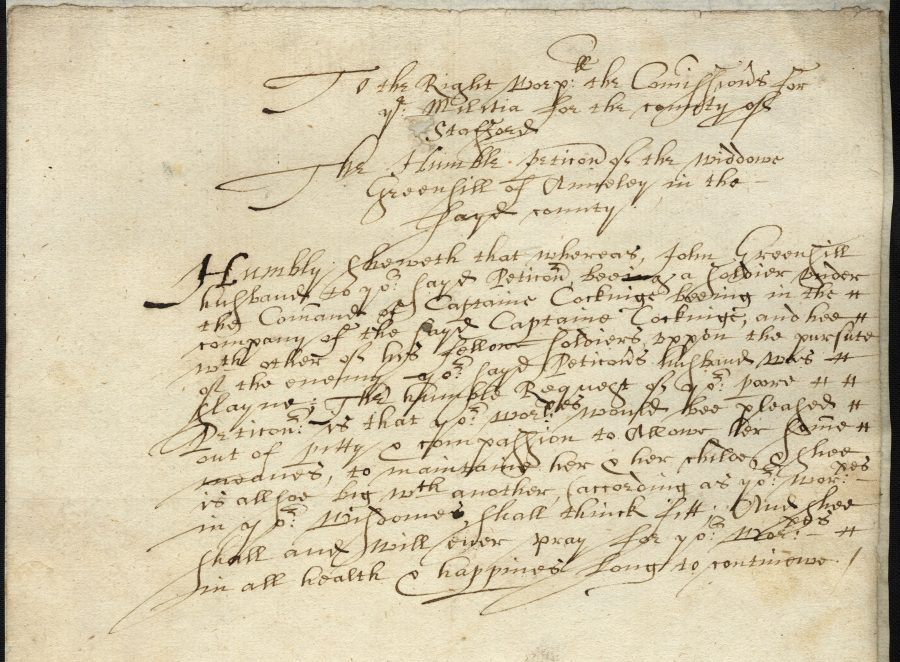 To the Right worpll: the Comissioners for
ye Militia for the county of
Stafford
The Humble peticon of the widdowe
Greenhill of Anneley in the
sayd county.
Humbly sheweth that whereas, John Greenhill
husband to yor: sayd Peticonr beeing a soldier under
the Comand of Captaine Cockinge beeing in the
company of the sayd Captaine Cockinge, and hee
wth other of his fellow soldiers, uppon the pursute
of the enemy yor: sayd Peticonrs husband was
slayne: The humble Request of yor: poore
Peticonr: is that yor: worpes would bee pleased
out of pitty & compassion to Allowe her some
meanes, to maintaine her & her childe, & shee
is allsoe big wth another, according as yor: worpes:
in yor: wisdomes shall thinck fitt: And shee
shall and will ever pray for yor: worpps:
in all health & happines long to continewe /